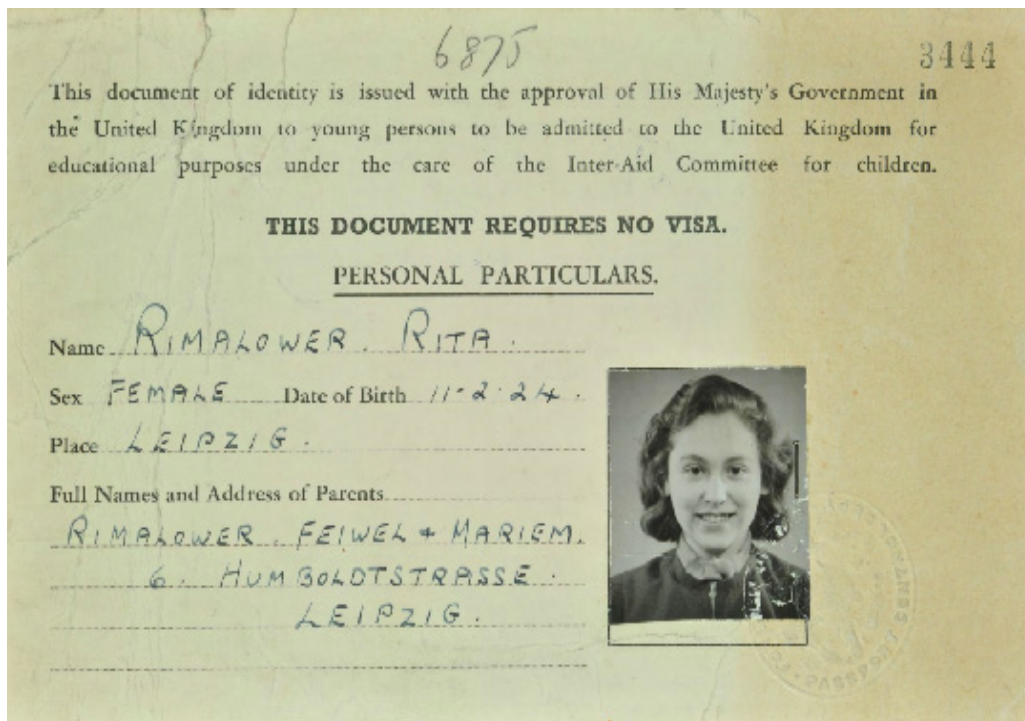 6875
3444
This document of identity is issued with the approval of His Majesty's Government in
the United Kingdom to young persons to be admitted to the United Kingdom for
educational purposes under the care of the Inter-Aid Committee for children.
THIS DOCUMENT REQUIRES NO VISA.
PERSONAL PARTICULARS.
Name RIMALOWER. RITA.
Sex FEMALE Date of Birth 11-2-24.
Place LEIPZIG.
Full Names and Address of Parents
RIMALOWER. FEIWEL + MARIEM.
6. HUMBOLDTSTRASSE.
LEIPZIG.